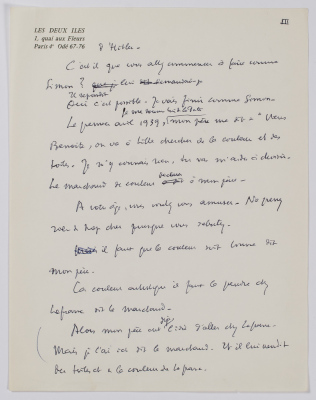 LES DEUX ILES
1, quai aux Fleurs
Paris 4e Odé 67-76
III
C'est il que vous allez commencer à faire comme
Simon ? lui
Il répondit
Oui c'est possible. Je vais finir comme Simon.
Le premier avril 1939, mon père me dit - " Viens
Benoite, on va à Lille chercher de la couleur et des
toiles. Je n'y connais rien, tu vas m'aider à choisir.
Le marchand de couleur à mon père.
A votre âge, vous voulez vous amuser. Ne prenez
rien de trop cher puisque vous débutez.
il faut que la couleur soit bonne dit
mon père.
La couleur il faut la prendre chez
Lefranc dit le marchand.
Alors mon père d'aller chez Lefranc.
Mais je l'ai ici dit le marchand. Et il lui vendit
des toiles et de la couleur de Lefranc.